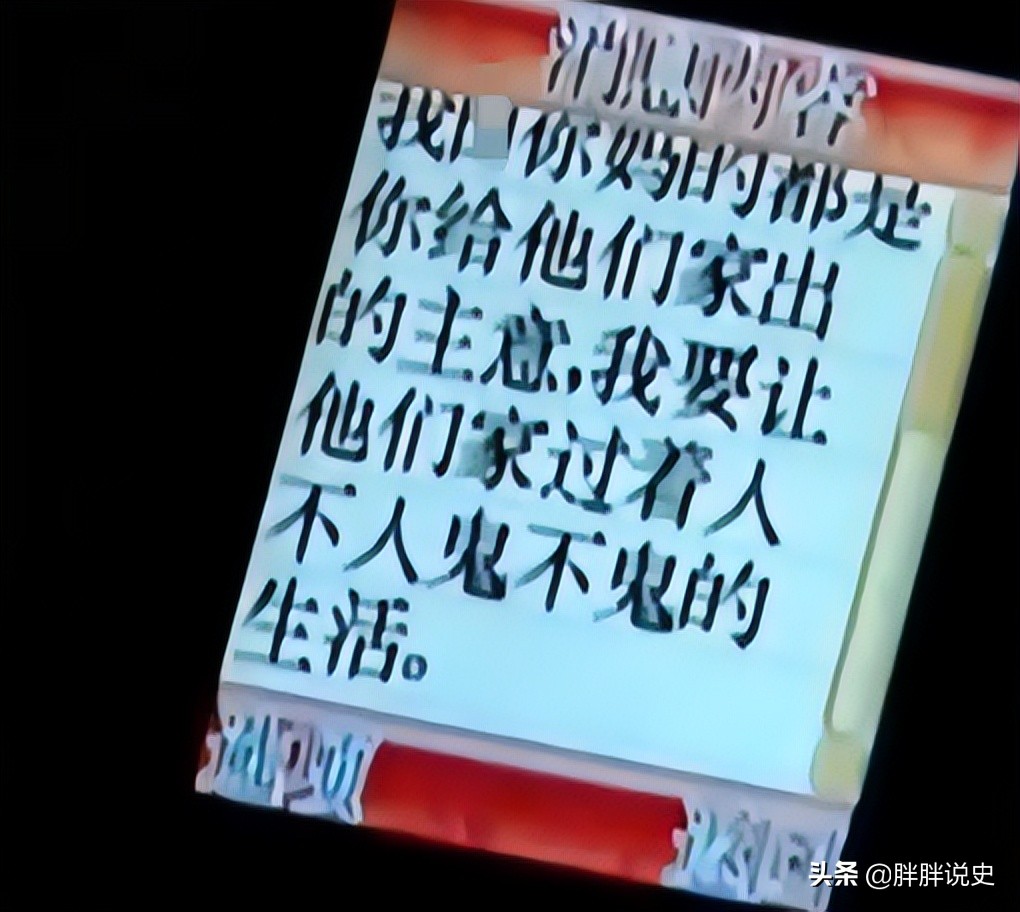 消息内容
我 你妈的都是
你给他们家出
的主意,我要让
他们家过着人
不人鬼不鬼的
生活。
选项
返回
头条 @胖胖说史